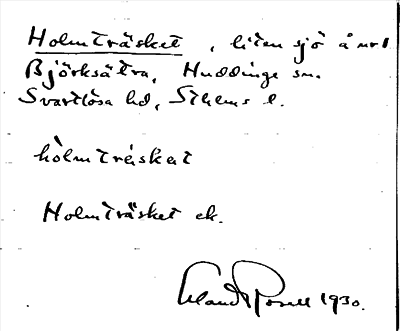 Holmträsket, liten sjö å nr 1
Björksätra, Huddinge sn.
Svartlösa hd, Sthems l.
hòlmtráskat
Holmträsket ek.
Erland Rosell 1930.